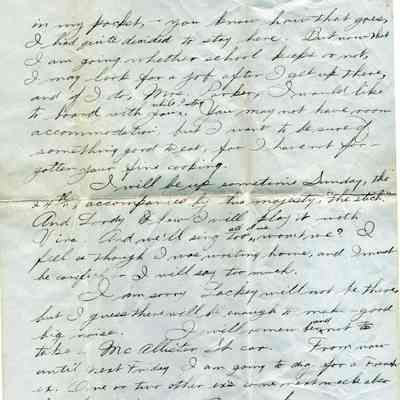 in my pocket, - you know how that goes,
I had quite decided to stay here. But now that
I am going whether school keeps or not,
I may look for a job after I get up there,
and if I do, Mrs. I would like
to board with you, while I stay You may not have room
accommodation but I want to be sure of
something good to eat, for I have not for-
gotten your fine cooking.
I will be up sometime Sunday, the
24th, accompanied by his majesty, "the stick".
And Lordy O how I will play it with
Vina. And we'll sing too, won't we? I
feel as though I was writing home, and I must
be careful or I will say too much.
I am sorry Lackey will not be there,
but I guess there will be enough to make good
big noise. I will and not to
take McAllister St car. From now
until next Friday I am going to dig for a French
ex. One or two other ex's come next week also